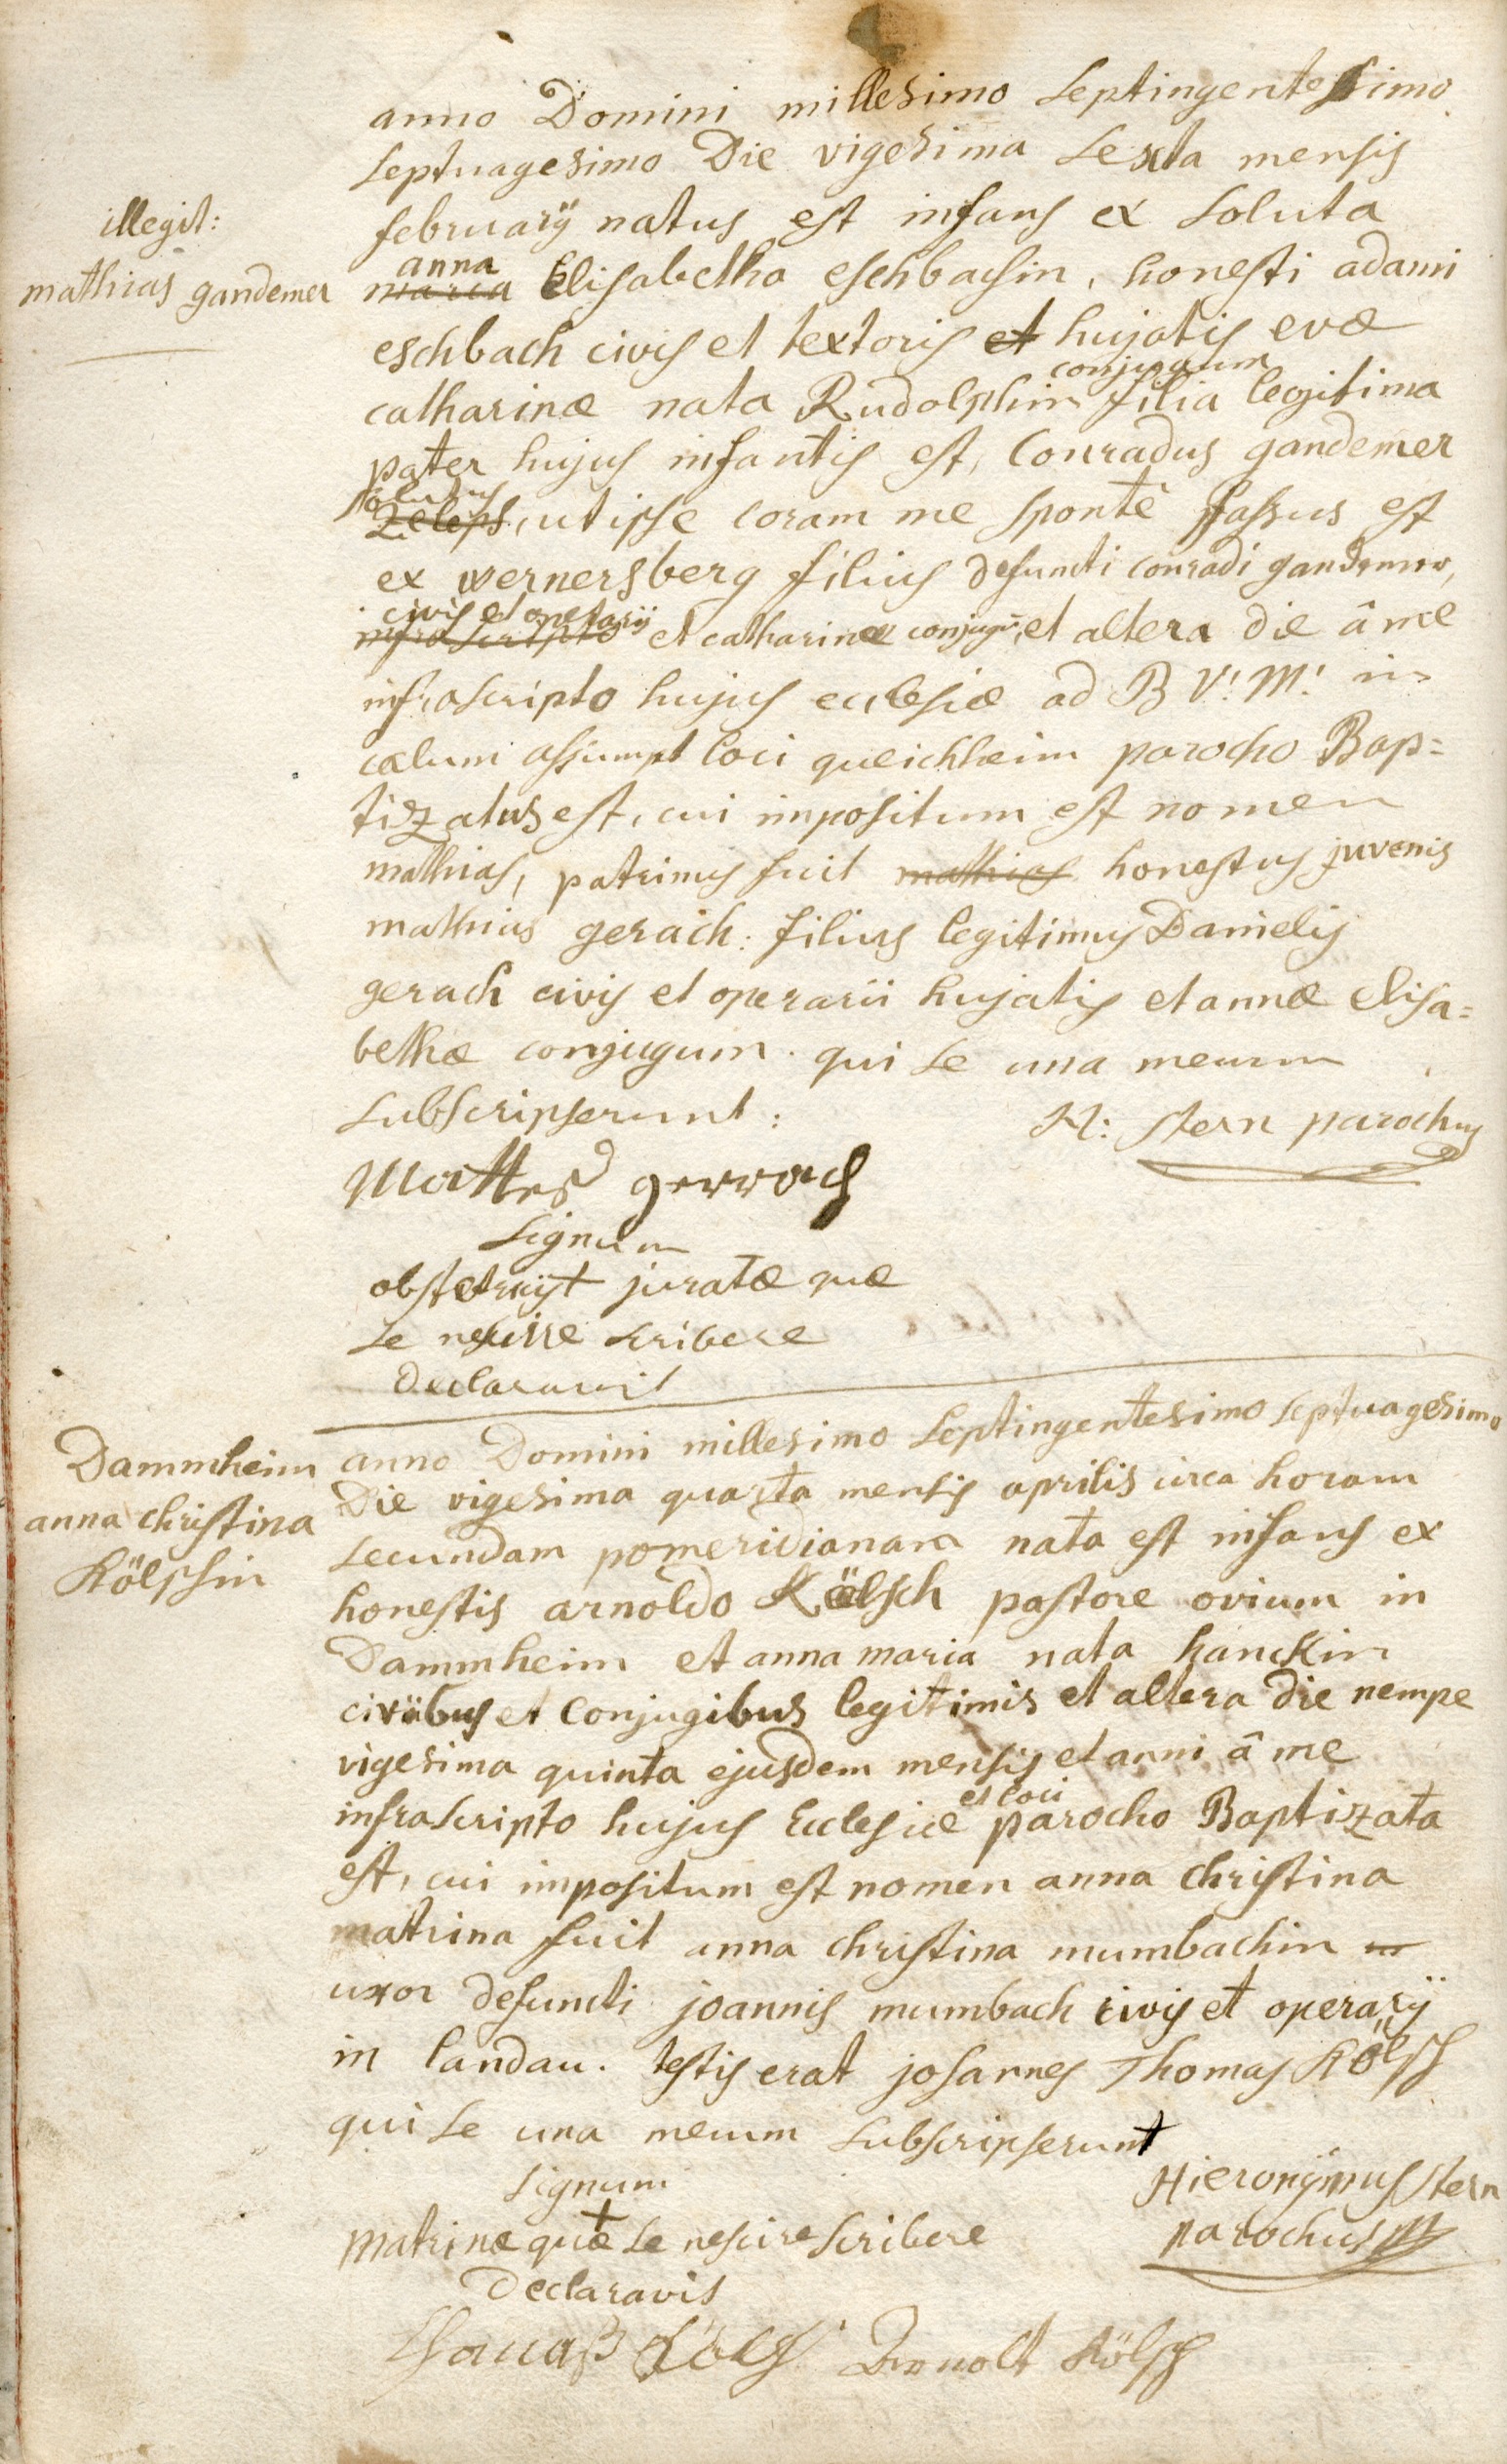 anno Domini millesimo septingentesimo
septuagesimo Die vigesima sexta mensis
illegit:
mathias gandemer
februarÿ natus est infans ex soluta
anna
maria Elisabetha eschbachin, honesti adami
eschbach civis et textoris et hujatis evæ
conjugum
catharinæ nata Rudolphin filia legitima
pater hujus infantis est, Conradus gandemer
solutus
, ut ipse coram me spontè fassus est
ex wernersberg filius defuncti conradi gandemer,
civis et operarÿ
infrascripto et catharinæ conjugū, et altera die â me
infrascripto hujus ecclesiæ ad B V: M: in
cælum assumpt loci queichheim parocho Bap=
tizatus est, cui impositum est nomen
mathias, patrinus fuit mathias honestus juvenis
mathias gerach: filius legitimus Danielis
gerach civis et operarii hujatis et annæ Elisa=
bethæ conjugum. qui se una mecum
subscripserunt:
H: stern parochus
Mattes gerrach
signum
obstetricis + juratæ quæ
se nescire scribere
declaravit
Dammheim
anna christina
Kölschin
anno Domini millesimo septingentesimo septuagesimo
Die vigesima quarta mensis aprilis circa horam
secundam pomeridianam nata est infans ex
honestis arnoldo Kölsch pastore ovium in
Dammheim et anna maria nata hanckin
civibus et Conjugibus legitimis et altera die nempe
vigesima quinta ejusdem mensis et anni â me
et loci
infrascripto hujus Ecclesiæ parocho Baptizata
est, cui impositum est nomen anna christina
matrina fuit anna christina mumbachin
uxor defuncti joannis mumbach civis et operarÿ
in landau. testis erat johannes Thomas Kölsch
qui se una mecum subscripserunt
signum
+
Matrinæ quæ se nescire scribere
declaravit
Hieronÿmus stern
parochus
Thomas Kölsch Arnolt Kölsch